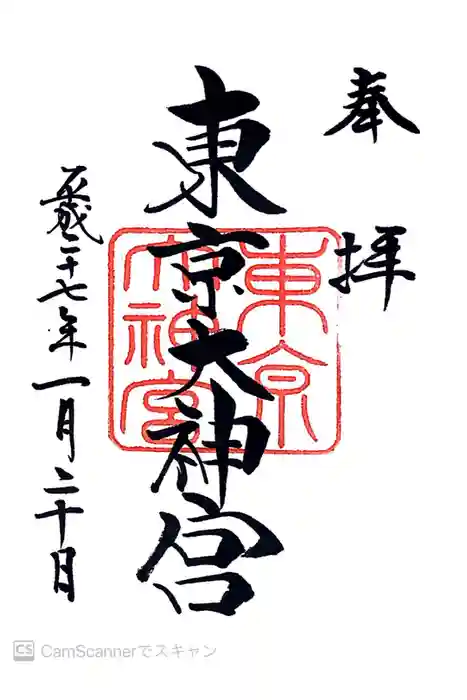 奉拝
東京大神宮
東京大神宮
平成二十七年一月二十日
CS CamScannerでスキャン